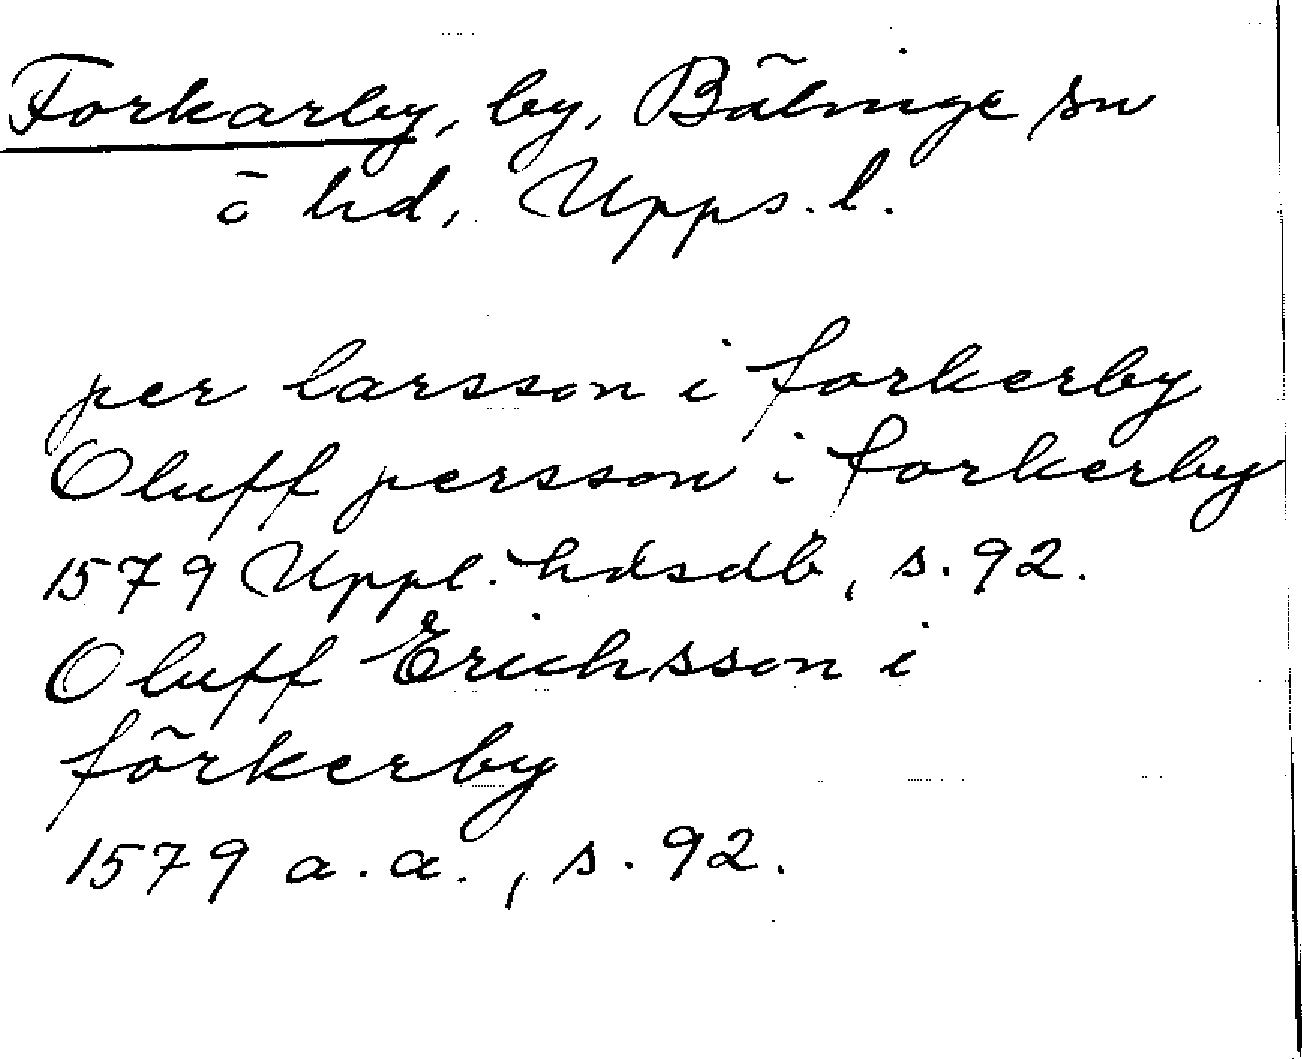 Forkarby, by, Bälinge sn
ö hd, Upps. l.
per larsson i forkerby
Oluff persson i forkerby
1579 Uppl. hdsdb, s. 92.
Oluff Erichsson i
förkerby
1579 a. a., s. 92.